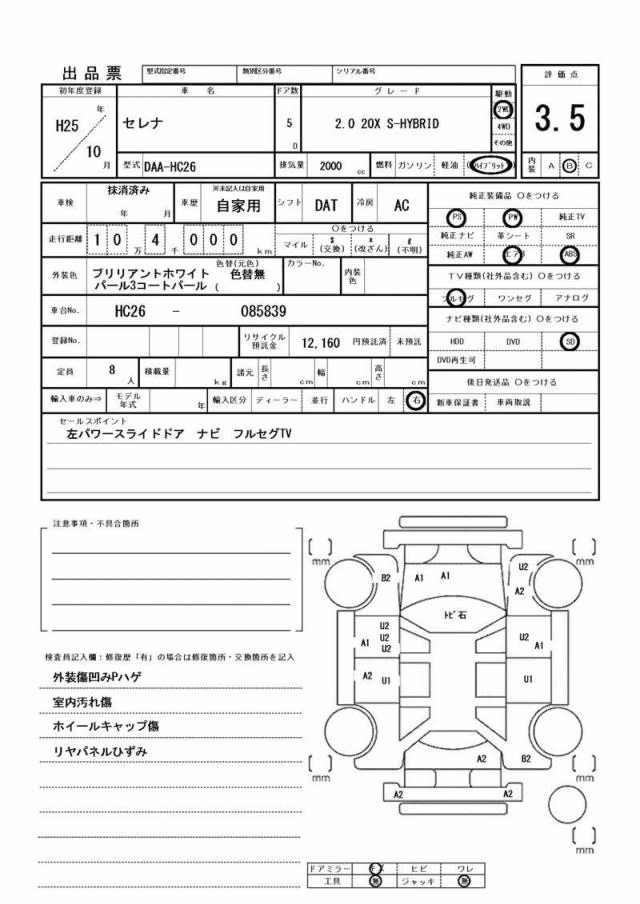 出品票 型式指定番号 類別区分番号 シリアル番号 評価点
初年度登録 車名 ドア数 グレード 駆動
H25 年 セレナ 5 D 2.0 20X S-HYBRID 2WD 3.5
4WD
その他
10 月 型式 DAA-HC26 排気量 2000 cc 燃料 ガソリン 軽油 (ハイブリット) 内装 A B C
車検 抹消済み 年 月 車歴 ※未記入は自家用 自家用 シフト DAT 冷房 AC 純正装備品 ○をつける
PS PW 純正TV
走行距離 1 0 万 4 千 0 0 0 km ○をつける
マイル $(交換) x(改ざん) #(不明)
純正ナビ 革シート SR
純正AW エアB ABS
外装色 ブリリアントホワイト パール3コートパール 色替(元色) 色替無 ( ) カラーNo. 内装色
TV種類(社外品含む) ○をつける
フルセグ ワンセグ アナログ
車台No. HC26 - 085839
ナビ種類(社外品含む) ○をつける
登録No. リサイクル預託金 12,160 円預託済 未預託
HDD DVD SD
DVD再生可
定員 8 人 積載量 kg 諸元 長さ cm 幅 cm 高さ cm
後日発送品 ○をつける
輸入車のみ⇒ モデル年式 年 輸入区分 ディーラー 並行 ハンドル 左 右 新車保証書 車両取説
セールスポイント
左パワースライドドア ナビ フルセグTV
注意事項・不具合箇所
検査員記入欄:修復歴「有」の場合は修復箇所・交換箇所を記入
外装傷凹みPハゲ
室内汚れ傷
ホイールキャップ傷
リヤパネルひずみ
[ ] mm [ ] mm
B2 A1 A1 U2
A2
トビ石
U2
A1 U2 U2 A1
U2
A2 U1 U1
A2 B2
[ ] mm [ ] mm
A2 A2
[ ] mm
ドアミラー キズ ヒビ ワレ
工具 無 ジャッキ 無